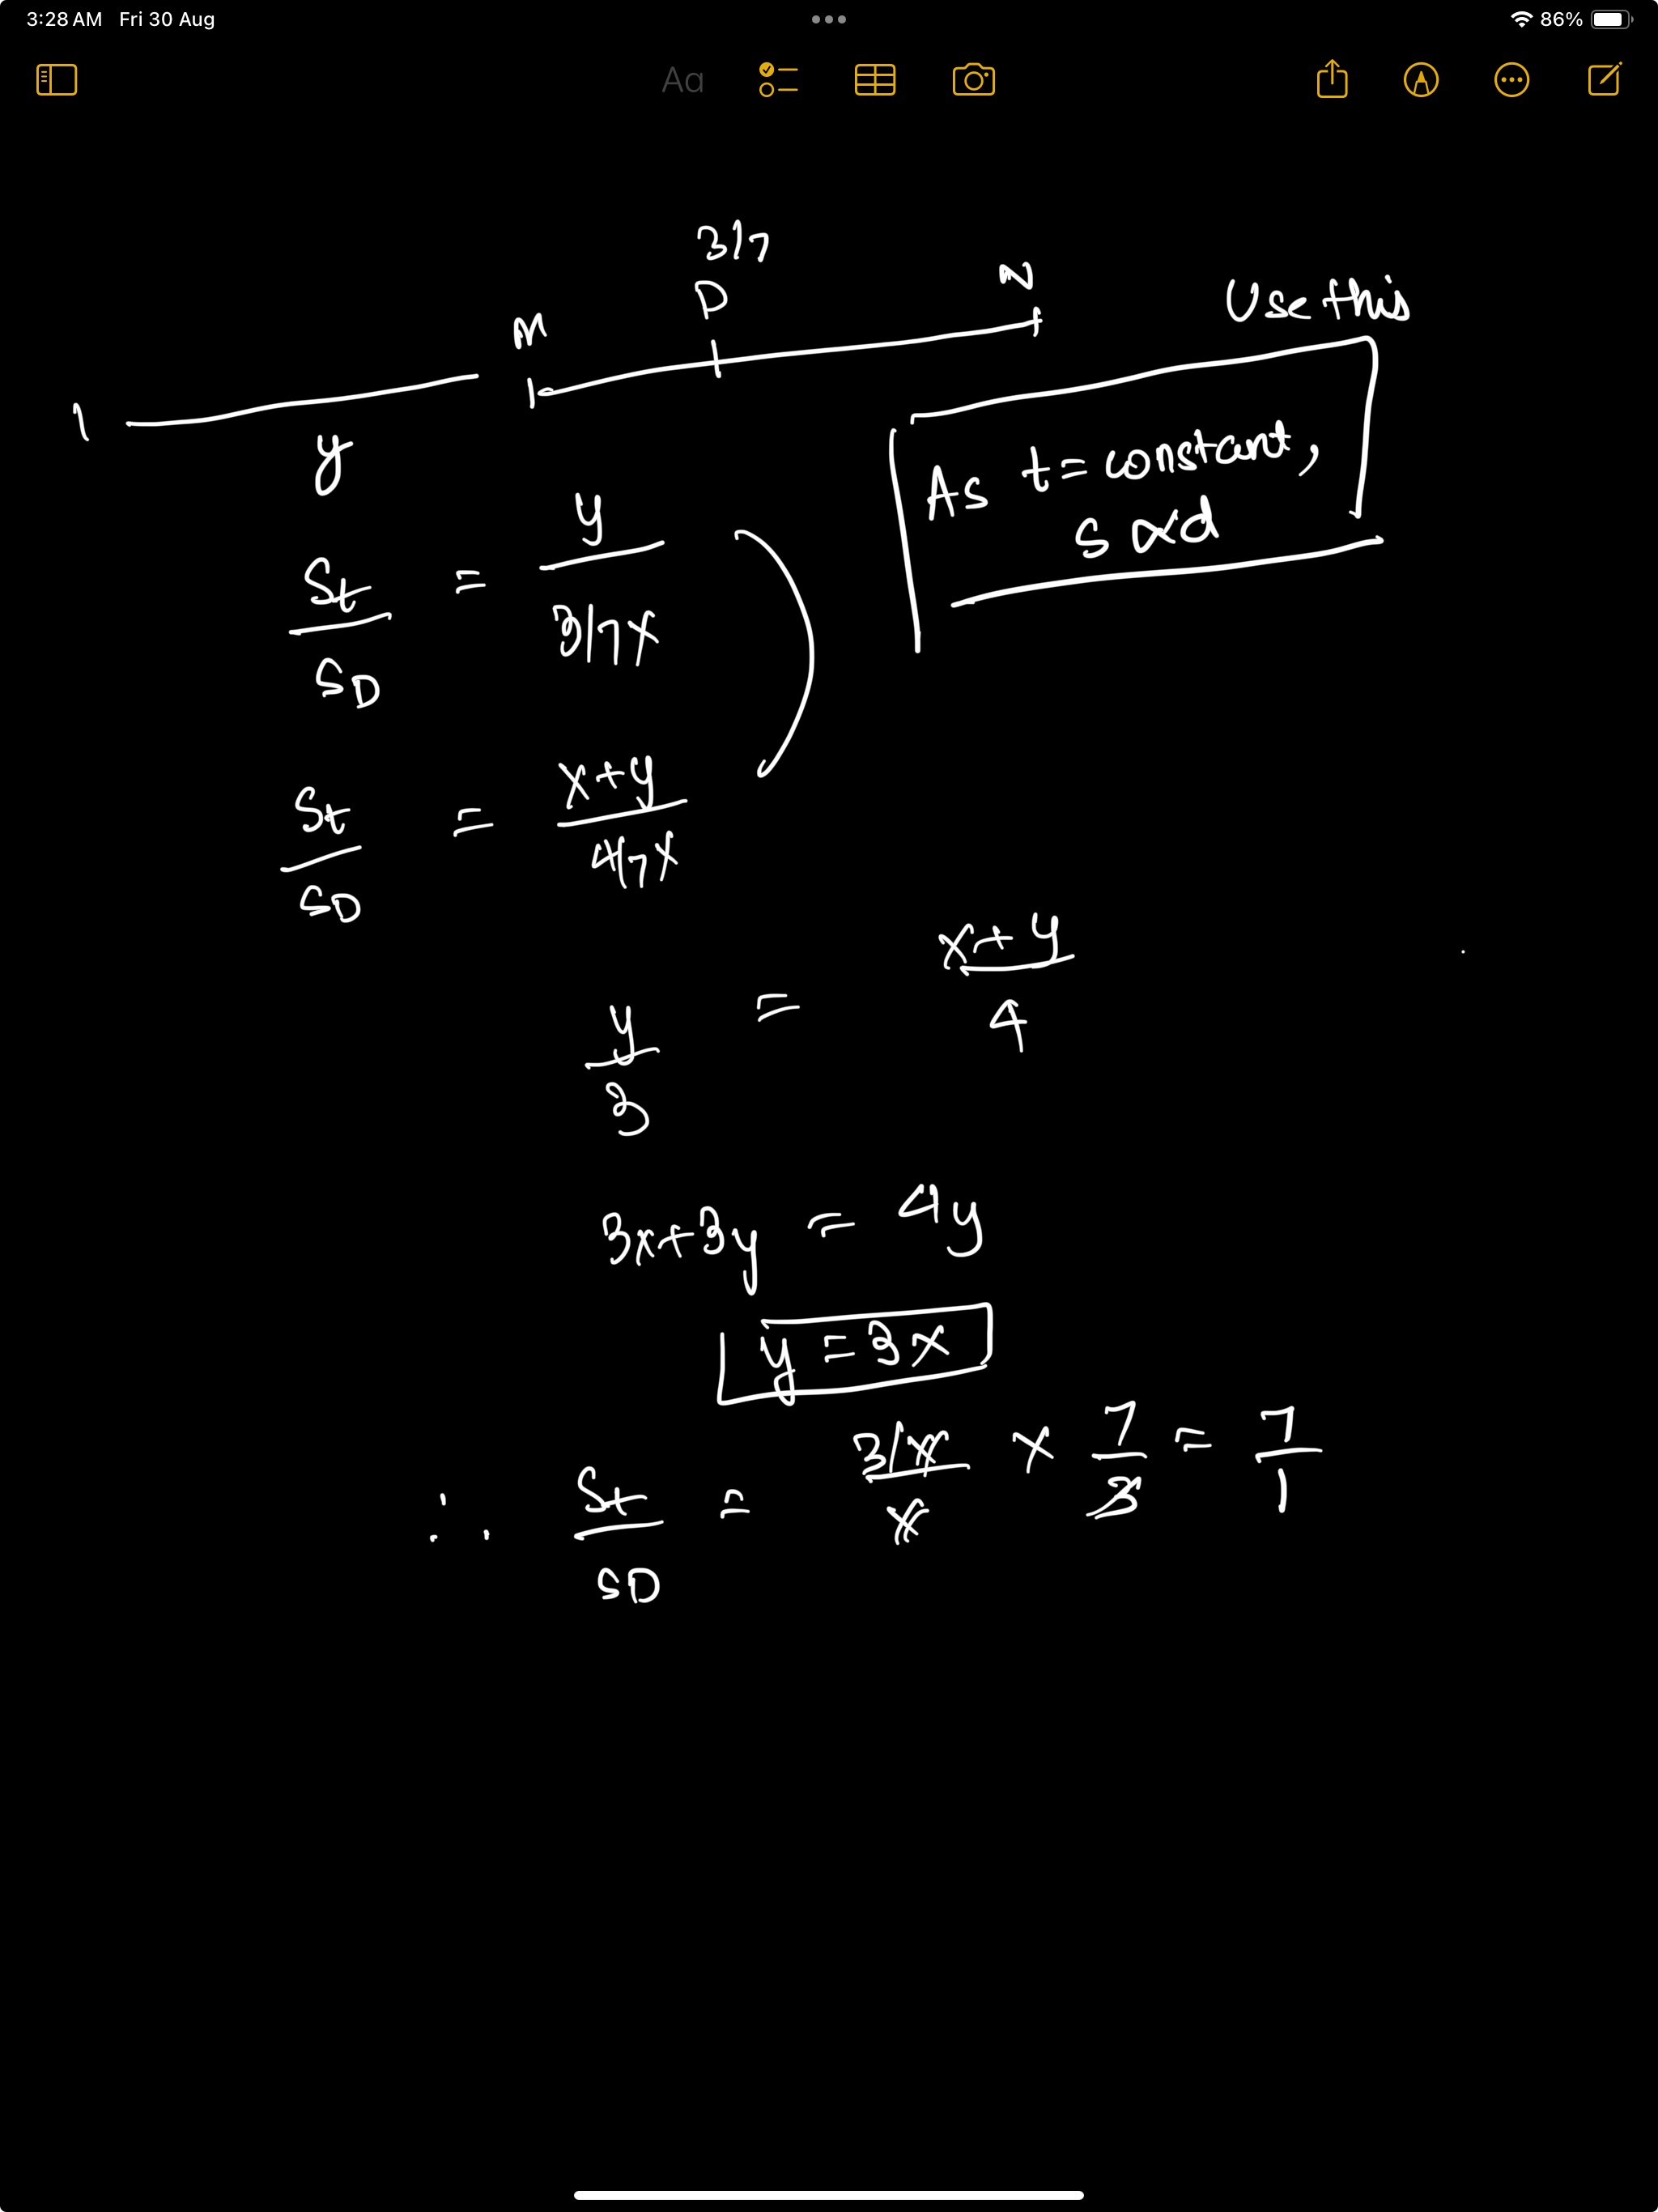 3:28 AM Fri 30 Aug
86%
Aa
3/7
D
M
N
Use this
y
As t = constant,
s ∝ d
St/SD = y/(3/7x)
St/SD = (x+y)/(4/7x)
y/3 = (x+y)/4
3x+3y = 4y
y = 3x
∴ St/SD = 3x/x × 7/3 = 7/1